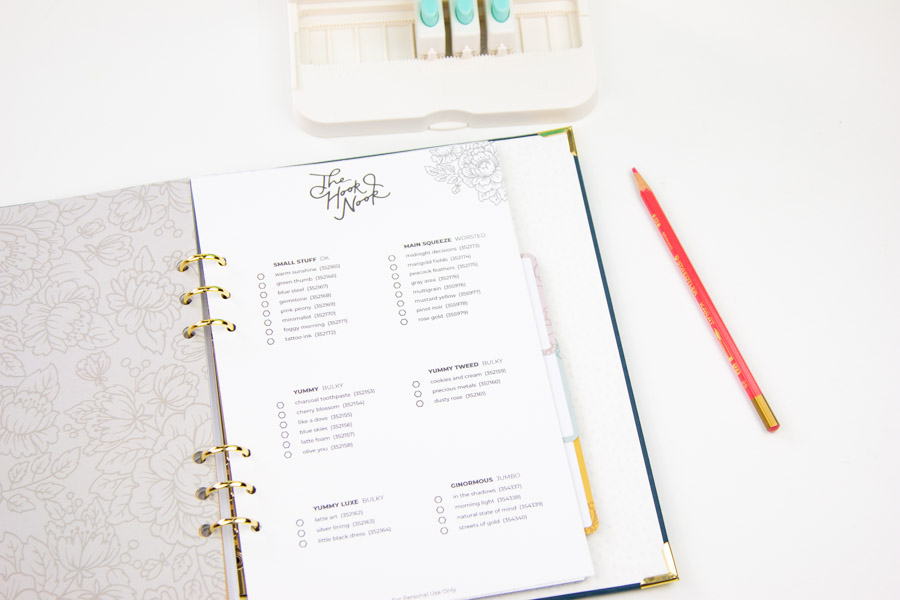 The
Hook &
Nook
SMALL STUFF DK
warm sunshine (352165)
green thumb (352166)
blue steel (352167)
gemstone (352168)
pink peony (352169)
minimalist (352170)
foggy morning (352171)
tattoo ink (352172)
MAIN SQUEEZE WORSTED
midnight decisions (352173)
marigold fields (352174)
peacock feathers (352175)
gray area (352176)
multigrain (355976)
mustard yellow (355977)
pinot noir (355978)
rose gold (355979)
YUMMY BULKY
charcoal toothpaste (352153)
cherry blossom (352154)
like a dove (352155)
blue skies (352156)
latte foam (352157)
olive you (352158)
YUMMY TWEED BULKY
cookies and cream (352159)
precious metals (352160)
dusty rose (352161)
YUMMY LUXE BULKY
latte art (352162)
silver lining (352163)
little black dress (352164)
GINORMOUS JUMBO
in the shadows (354337)
morning light (354338)
natural state of mind (354339)
streets of gold (354340)
For Personal Use Only